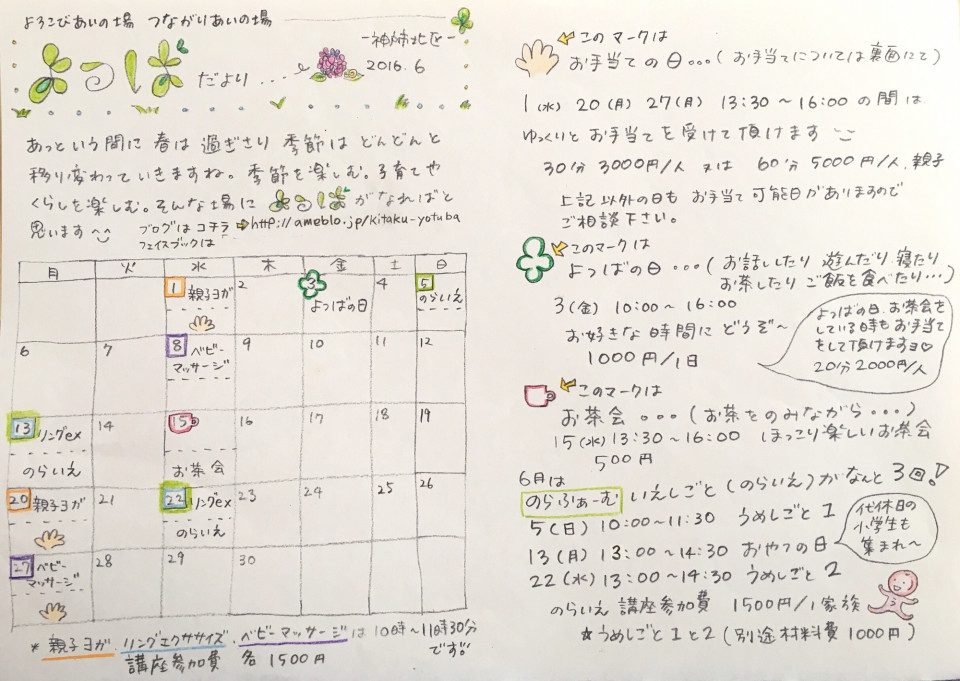 よろこびあいの場 つながりあいの場
よつば だより...
-神姉北区-
2016.6
あっという間に 春は 過ぎさり 季節は どんどんと
移り変わっていきますね。季節を楽しむ。子育てや
くらしを楽しむ。そんな場に よつば がなればと
思います
ブログは コチラ ⇒http://ameblo.jp/kitaku-yotuba
フェイスブックは
月 火 水 木 金 土 日
1 親子ヨガ 2 3 よつばの日 4 5 のらいえ
6 7 8 ベビーマッサージ 9 10 11 12
13 リングex のらいえ 14 15 お茶会 16 17 18 19
20 親子ヨガ 21 22 リングex のらいえ 23 24 25 26
27 ベビーマッサージ 28 29 30
* 親子ヨガ. リングエクササイズ. ベビーマッサージ は 10時~11時30分
講座参加費 各 1500円 です!!
このマークは
お手当ての日...(お手当てについては裏面にて)
1(水) 20(月) 27(月) 13:30~16:00 の間は
ゆっくりと お手当てを受けて頂けます
30分 3000円/人 又は 60分 5000円/人.親子
上記以外の日も お手当て可能日がありますので
ご相談下さい。
このマークは
よつばの日...(お話ししたり 遊んだり 寝たり
お茶したり ご飯を食べたり...)
3(金) 10:00~16:00
お好きな時間に どうぞ~
1000円/1日
よつばの日、お茶会を
している時も お手当て
をして頂けますョ♡
20分2000円/人
このマークは
お茶会...(お茶をのみながら...)
15(水) 13:30~16:00 ほっこり楽しいお茶会
500円
6月は
のらふぁーむ いえしごと(のらいえ)がなんと 3回!
5(日) 10:00~11:30 うめしごと 1
13(月) 13:00~14:30 おやつの日
22(水) 13:00~14:30 うめしごと 2
代休日の
小学生も
集まれ~
のらいえ 講座参加費 1500円/1家族
☆うめしごと1と2(別途材料費1000円)